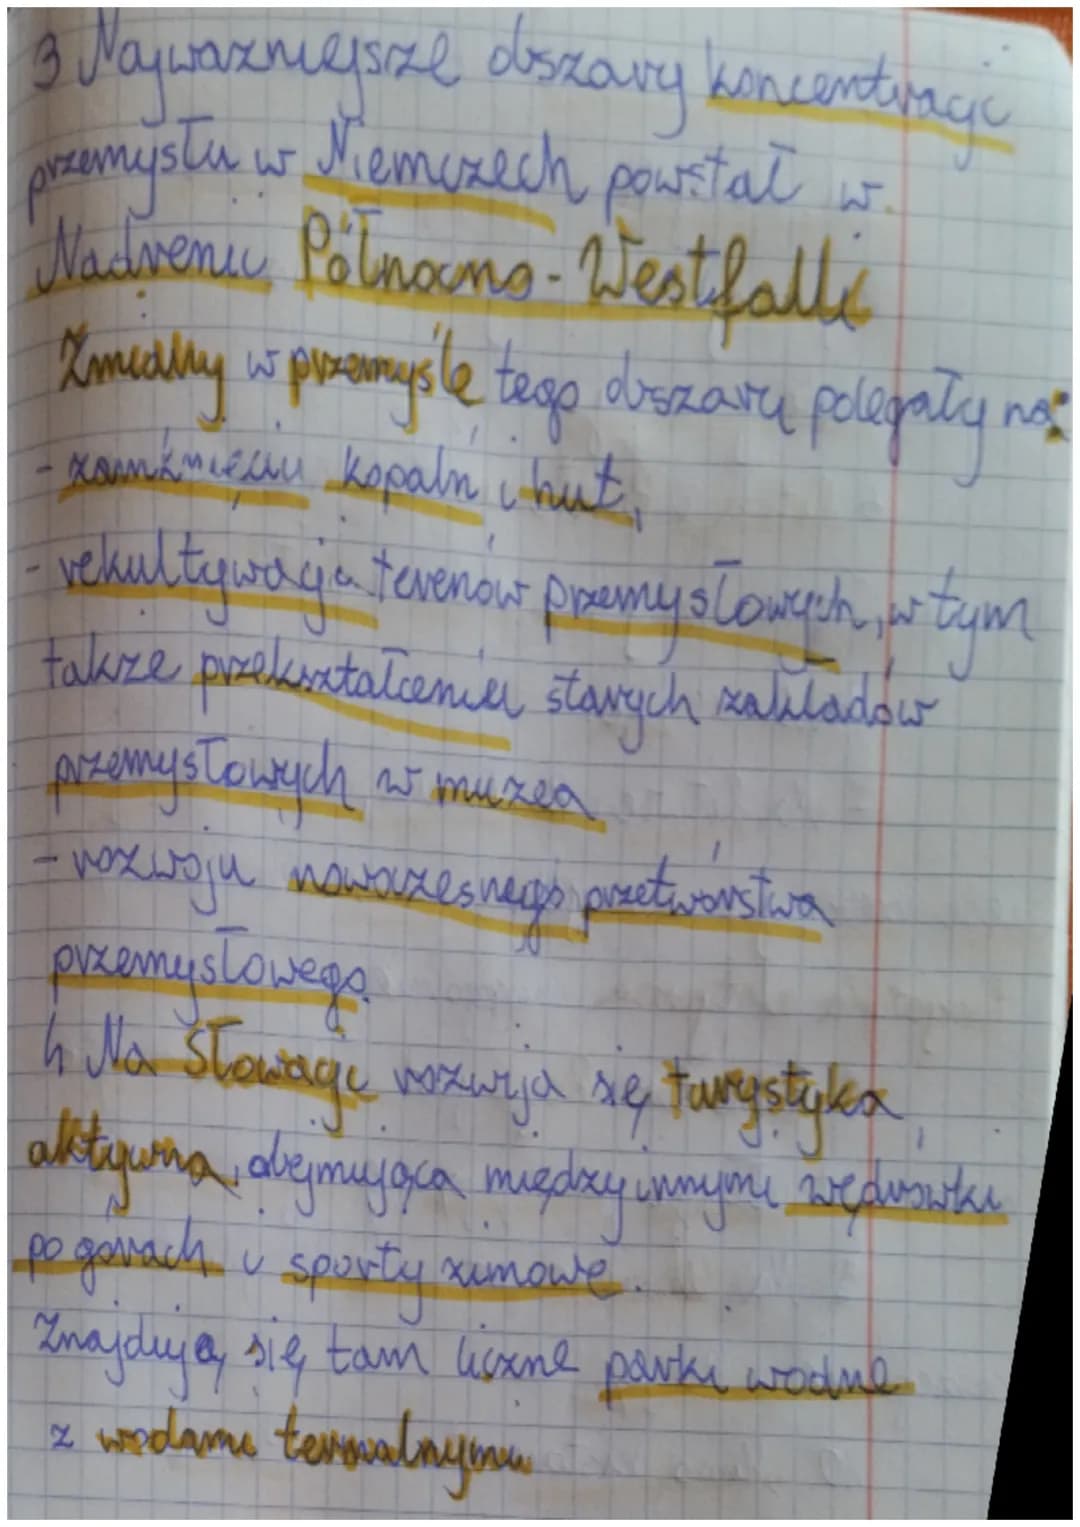 3 Najważniejsze obszary koncentracji
przemysłu w Niemczech powstał w
Nadrenii Północno-Westfalii
Zmiany w przemyśle tego obszaru polegały na:
- zamknięciu kopaln i hut,
- rekultywacja terenów przemysłowych, w tym
także przekształceniu starych zakładów
przemysłowych w muzea
- rozwoju nowoczesnego przetwórstwa
przemysłowego.
4 Na Słowacji rozwija się turystyka
aktywna, obejmująca między innymi wędrówki
po górach i sporty zimowe.
Znajdują się tam liczne parki wodne
z wodami termalnymi